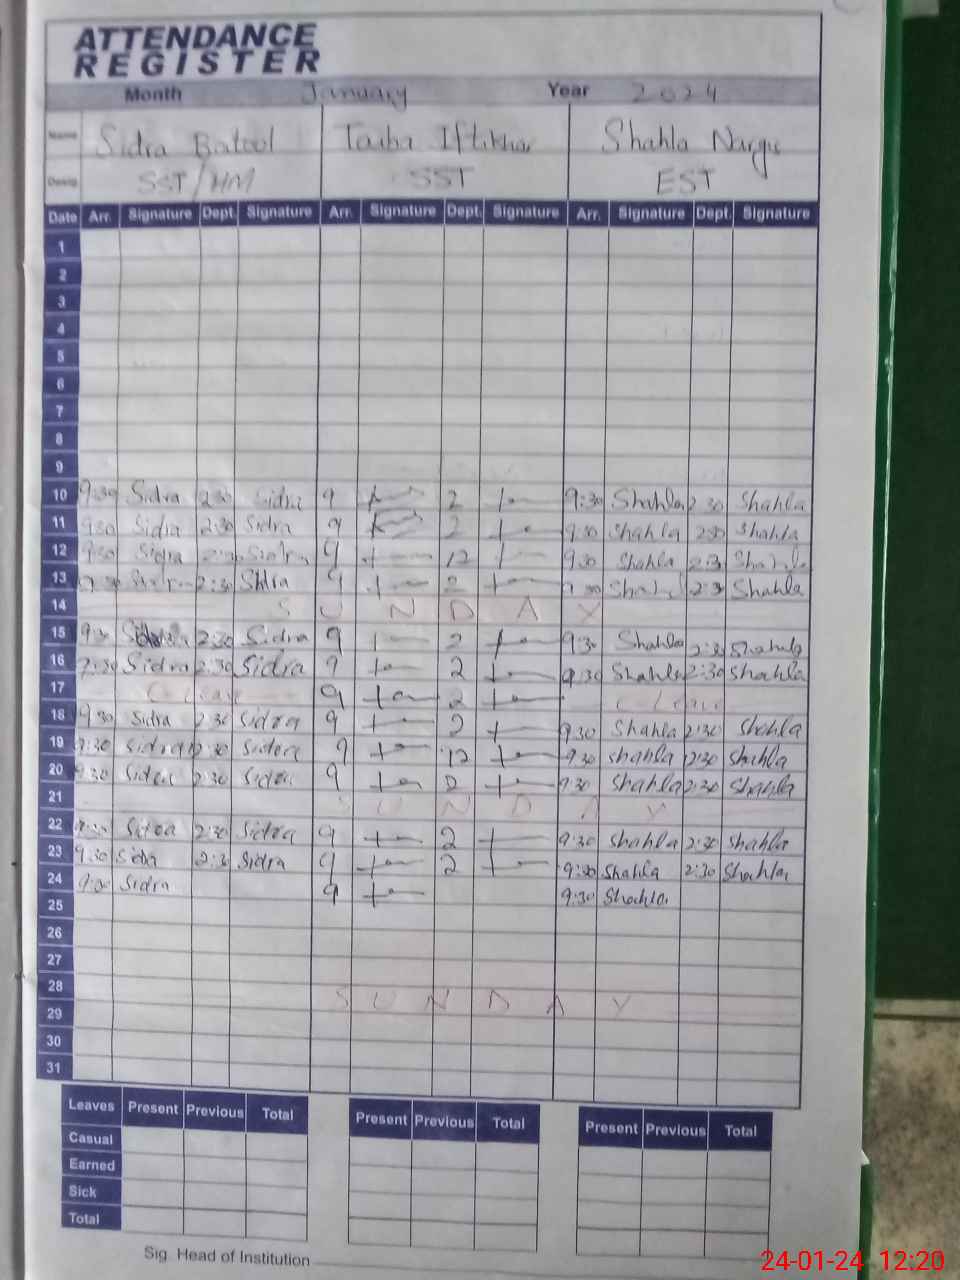 ATTENDANCE
REGISTER
Month January Year 2024
Name Sidra Batool Taiba Iftikhar Shahla Nargis
Desig. SST/HM SST EST
Date Arr. Signature Dept. Signature Arr. Signature Dept. Signature Arr. Signature Dept. Signature
1
2
3
4
5
6
7
8
9
10 9:30 Sidra 2:30 Sidra 9 2 9:30 Shahla 2:30 Shahla
11 9:30 Sidra 2:30 Sidra 9 2 9:30 Shahla 2:30 Shahla
12 9:30 Sidra 2:30 Sidra 9 12 9:30 Shahla 2:3 Shahla
13 9:30 Sidra 2:30 Sidra 9 2 9:30 Shahla 2:3 Shahla
14 SUNDAY
15 9:30 Sidra 2:30 Sidra 9 2 9:30 Shahla 2:30 Shahla
16 9:30 Sidra 2:30 Sidra 9 2 9:30 Shahla 2:30 Shahla
17 C Leave 9 2 C Leave
18 9:30 Sidra 2:30 Sidra 9 2 9:30 Shahla 2:30 Shahla
19 9:30 Sidra 2:30 Sidra 9 12 9:30 Shahla 2:30 Shahla
20 9:30 Sidra 2:30 Sidra 9 2 9:30 Shahla 2:30 Shahla
21 SUNDAY
22 9:30 Sidra 2:30 Sidra 9 2 9:30 Shahla 2:30 Shahla
23 9:30 Sidra 2:30 Sidra 9 2 9:30 Shahla 2:30 Shahla
24 9:30 Sidra 9 9:30 Shahla
25
26
27
28 SUNDAY
29
30
31
Leaves Present Previous Total Present Previous Total Present Previous Total
Casual
Earned
Sick
Total
Sig. Head of Institution
24-01-24 12:20